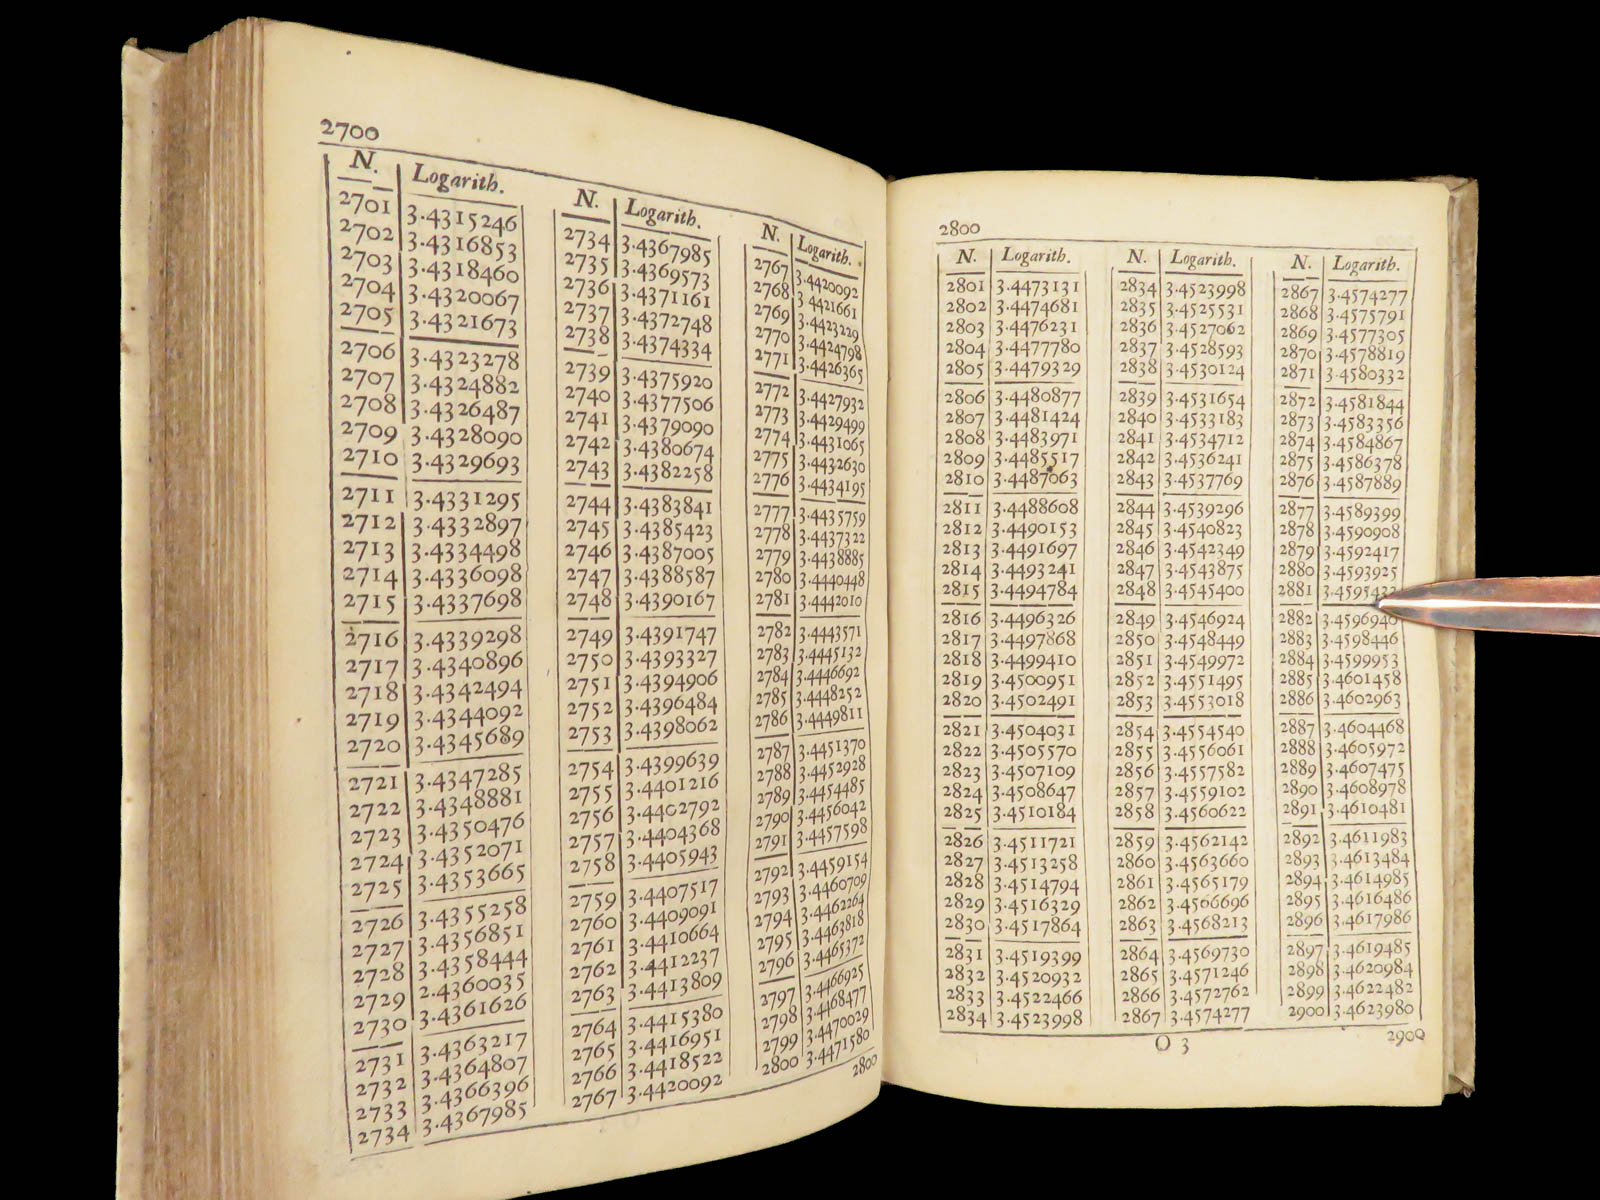 2700
N. Logarith. N. Logarith. N. Logarith.
2701 3.4315246 2734 3.4367985 2767 3.4420092
2702 3.4316853 2735 3.4369573 2768 3.4421661
2703 3.4318460 2736 3.4371161 2769 3.4423229
2704 3.4320067 2737 3.4372748 2770 3.4424798
2705 3.4321673 2738 3.4374334 2771 3.4426365
2706 3.4323278 2739 3.4375920 2772 3.4427932
2707 3.4324882 2740 3.4377506 2773 3.4429499
2708 3.4326487 2741 3.4379090 2774 3.4431065
2709 3.4328090 2742 3.4380674 2775 3.4432630
2710 3.4329693 2743 3.4382258 2776 3.4434195
2711 3.4331295 2744 3.4383841 2777 3.4435759
2712 3.4332897 2745 3.4385423 2778 3.4437322
2713 3.4334498 2746 3.4387005 2779 3.4438885
2714 3.4336098 2747 3.4388587 2780 3.4440448
2715 3.4337698 2748 3.4390167 2781 3.4442010
2716 3.4339298 2749 3.4391747 2782 3.4443571
2717 3.4340896 2750 3.4393327 2783 3.4445132
2718 3.4342494 2751 3.4394906 2784 3.4446692
2719 3.4344092 2752 3.4396484 2785 3.4448252
2720 3.4345689 2753 3.4398062 2786 3.4449811
2721 3.4347285 2754 3.4399639 2787 3.4451370
2722 3.4348881 2755 3.4401216 2788 3.4452928
2723 3.4350476 2756 3.4402792 2789 3.4454485
2724 3.4352071 2757 3.4404368 2790 3.4456042
2725 3.4353665 2758 3.4405943 2791 3.4457598
2726 3.4355258 2759 3.4407517 2792 3.4459154
2727 3.4356851 2760 3.4409091 2793 3.4460709
2728 3.4358444 2761 3.4410664 2794 3.4462264
2729 2.4360035 2762 3.4412237 2795 3.4463818
2730 3.4361626 2763 3.4413809 2796 3.4465372
2731 3.4363217 2764 3.4415380 2797 3.4466925
2732 3.4364807 2765 3.4416951 2798 3.4468477
2733 3.4366396 2766 3.4418522 2799 3.4470029
2734 3.4367985 2767 3.4420092 2800 3.4471580
2800
2800
N. Logarith. N. Logarith. N. Logarith.
2801 3.4473131 2834 3.4523998 2867 3.4574277
2802 3.4474681 2835 3.4525531 2868 3.4575791
2803 3.4476231 2836 3.4527062 2869 3.4577305
2804 3.4477780 2837 3.4528593 2870 3.4578819
2805 3.4479329 2838 3.4530124 2871 3.4580332
2806 3.4480877 2839 3.4531654 2872 3.4581844
2807 3.4481424 2840 3.4533183 2873 3.4583356
2808 3.4483971 2841 3.4534712 2874 3.4584867
2809 3.4485517 2842 3.4536241 2875 3.4586378
2810 3.4487063 2843 3.4537769 2876 3.4587889
2811 3.4488608 2844 3.4539296 2877 3.4589399
2812 3.4490153 2845 3.4540823 2878 3.4590908
2813 3.4491697 2846 3.4542349 2879 3.4592417
2814 3.4493241 2847 3.4543875 2880 3.4593925
2815 3.4494784 2848 3.4545400 2881
2816 3.4496326 2849 3.4546924 2882 3.4596940
2817 3.4497868 2850 3.4548449 2883 3.4598446
2818 3.4499410 2851 3.4549972 2884 3.4599953
2819 3.4500951 2852 3.4551495 2885 3.4601458
2820 3.4502491 2853 3.4553018 2886 3.4602963
2821 3.4504031 2854 3.4554540 2887 3.4604468
2822 3.4505570 2855 3.4556061 2888 3.4605972
2823 3.4507109 2856 3.4557582 2889 3.4607475
2824 3.4508647 2857 3.4559102 2890 3.4608978
2825 3.4510184 2858 3.4560622 2891 3.4610481
2826 3.4511721 2859 3.4562142 2892 3.4611983
2827 3.4513258 2860 3.4563660 2893 3.4613484
2828 3.4514794 2861 3.4565179 2894 3.4614985
2829 3.4516329 2862 3.4566696 2895 3.4616486
2830 3.4517864 2863 3.4568213 2896 3.4617986
2831 3.4519399 2864 3.4569730 2897 3.4619485
2832 3.4520932 2865 3.4571246 2898 3.4620984
2833 3.4522466 2866 3.4572762 2899 3.4622482
2834 3.4523998 2867 3.4574277 2900 3.4623980
O 3 2900